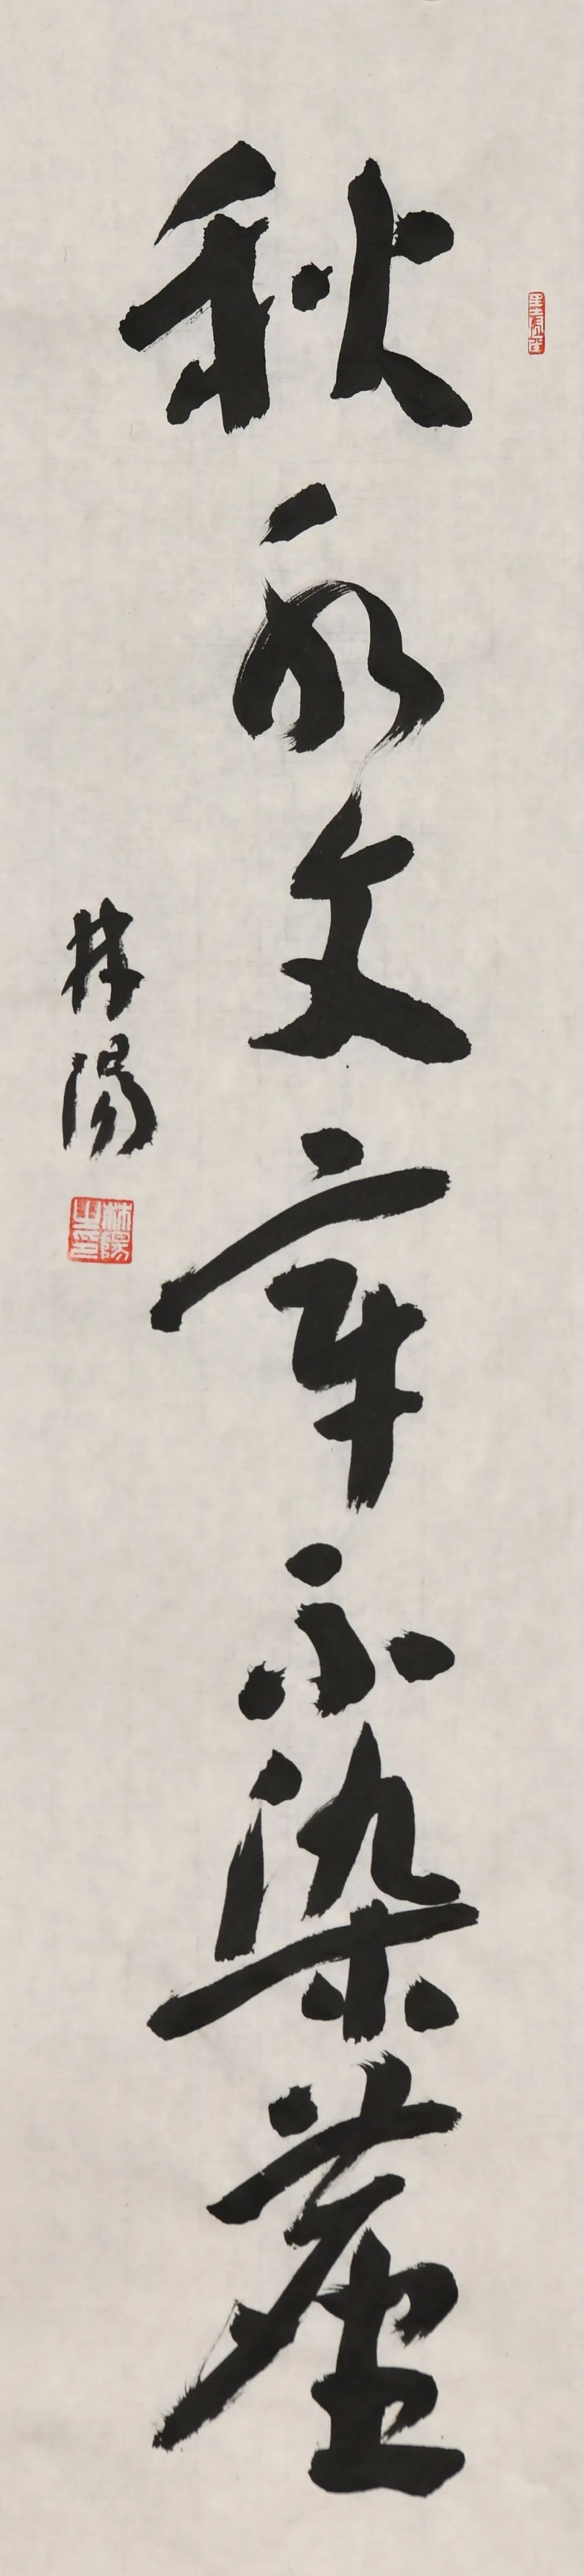 秋水文章不染塵
林陽
林陽之印